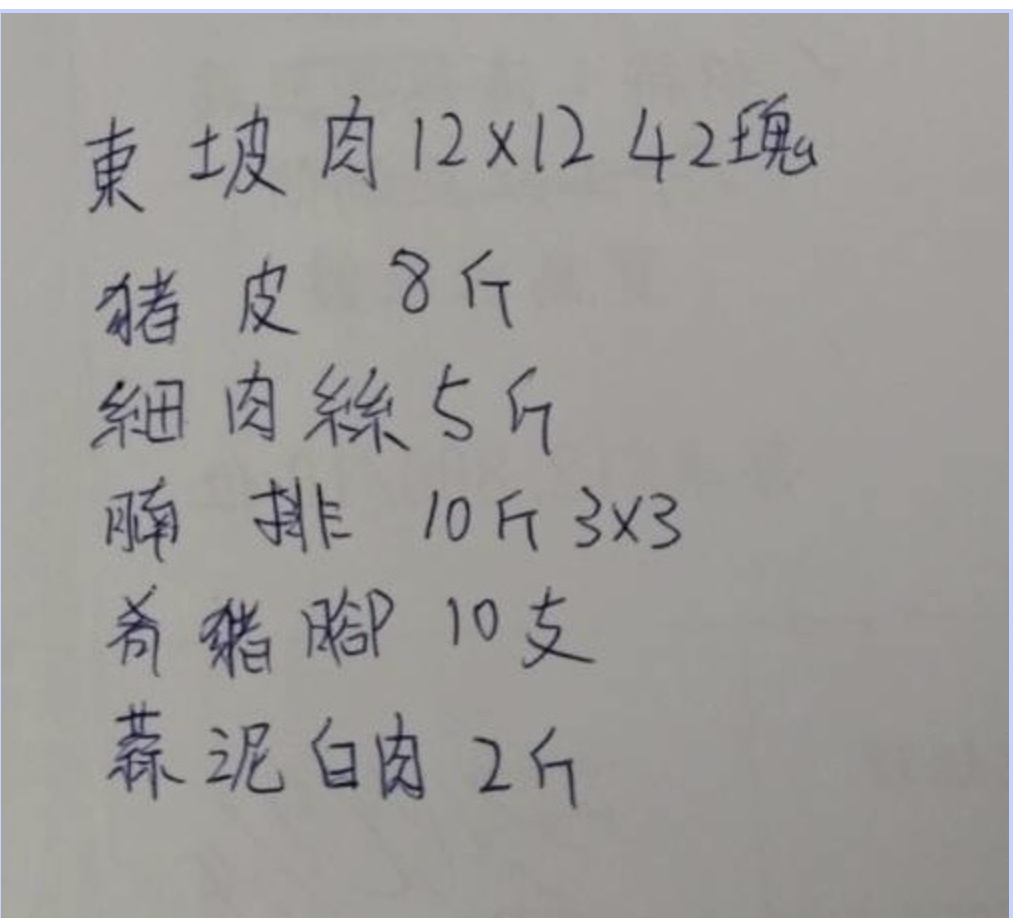 東坡肉12x12 42塊
猪皮 8斤
細肉絲5斤
腩排 10斤3x3
斉猪腳 10支
蒜泥白肉 2斤